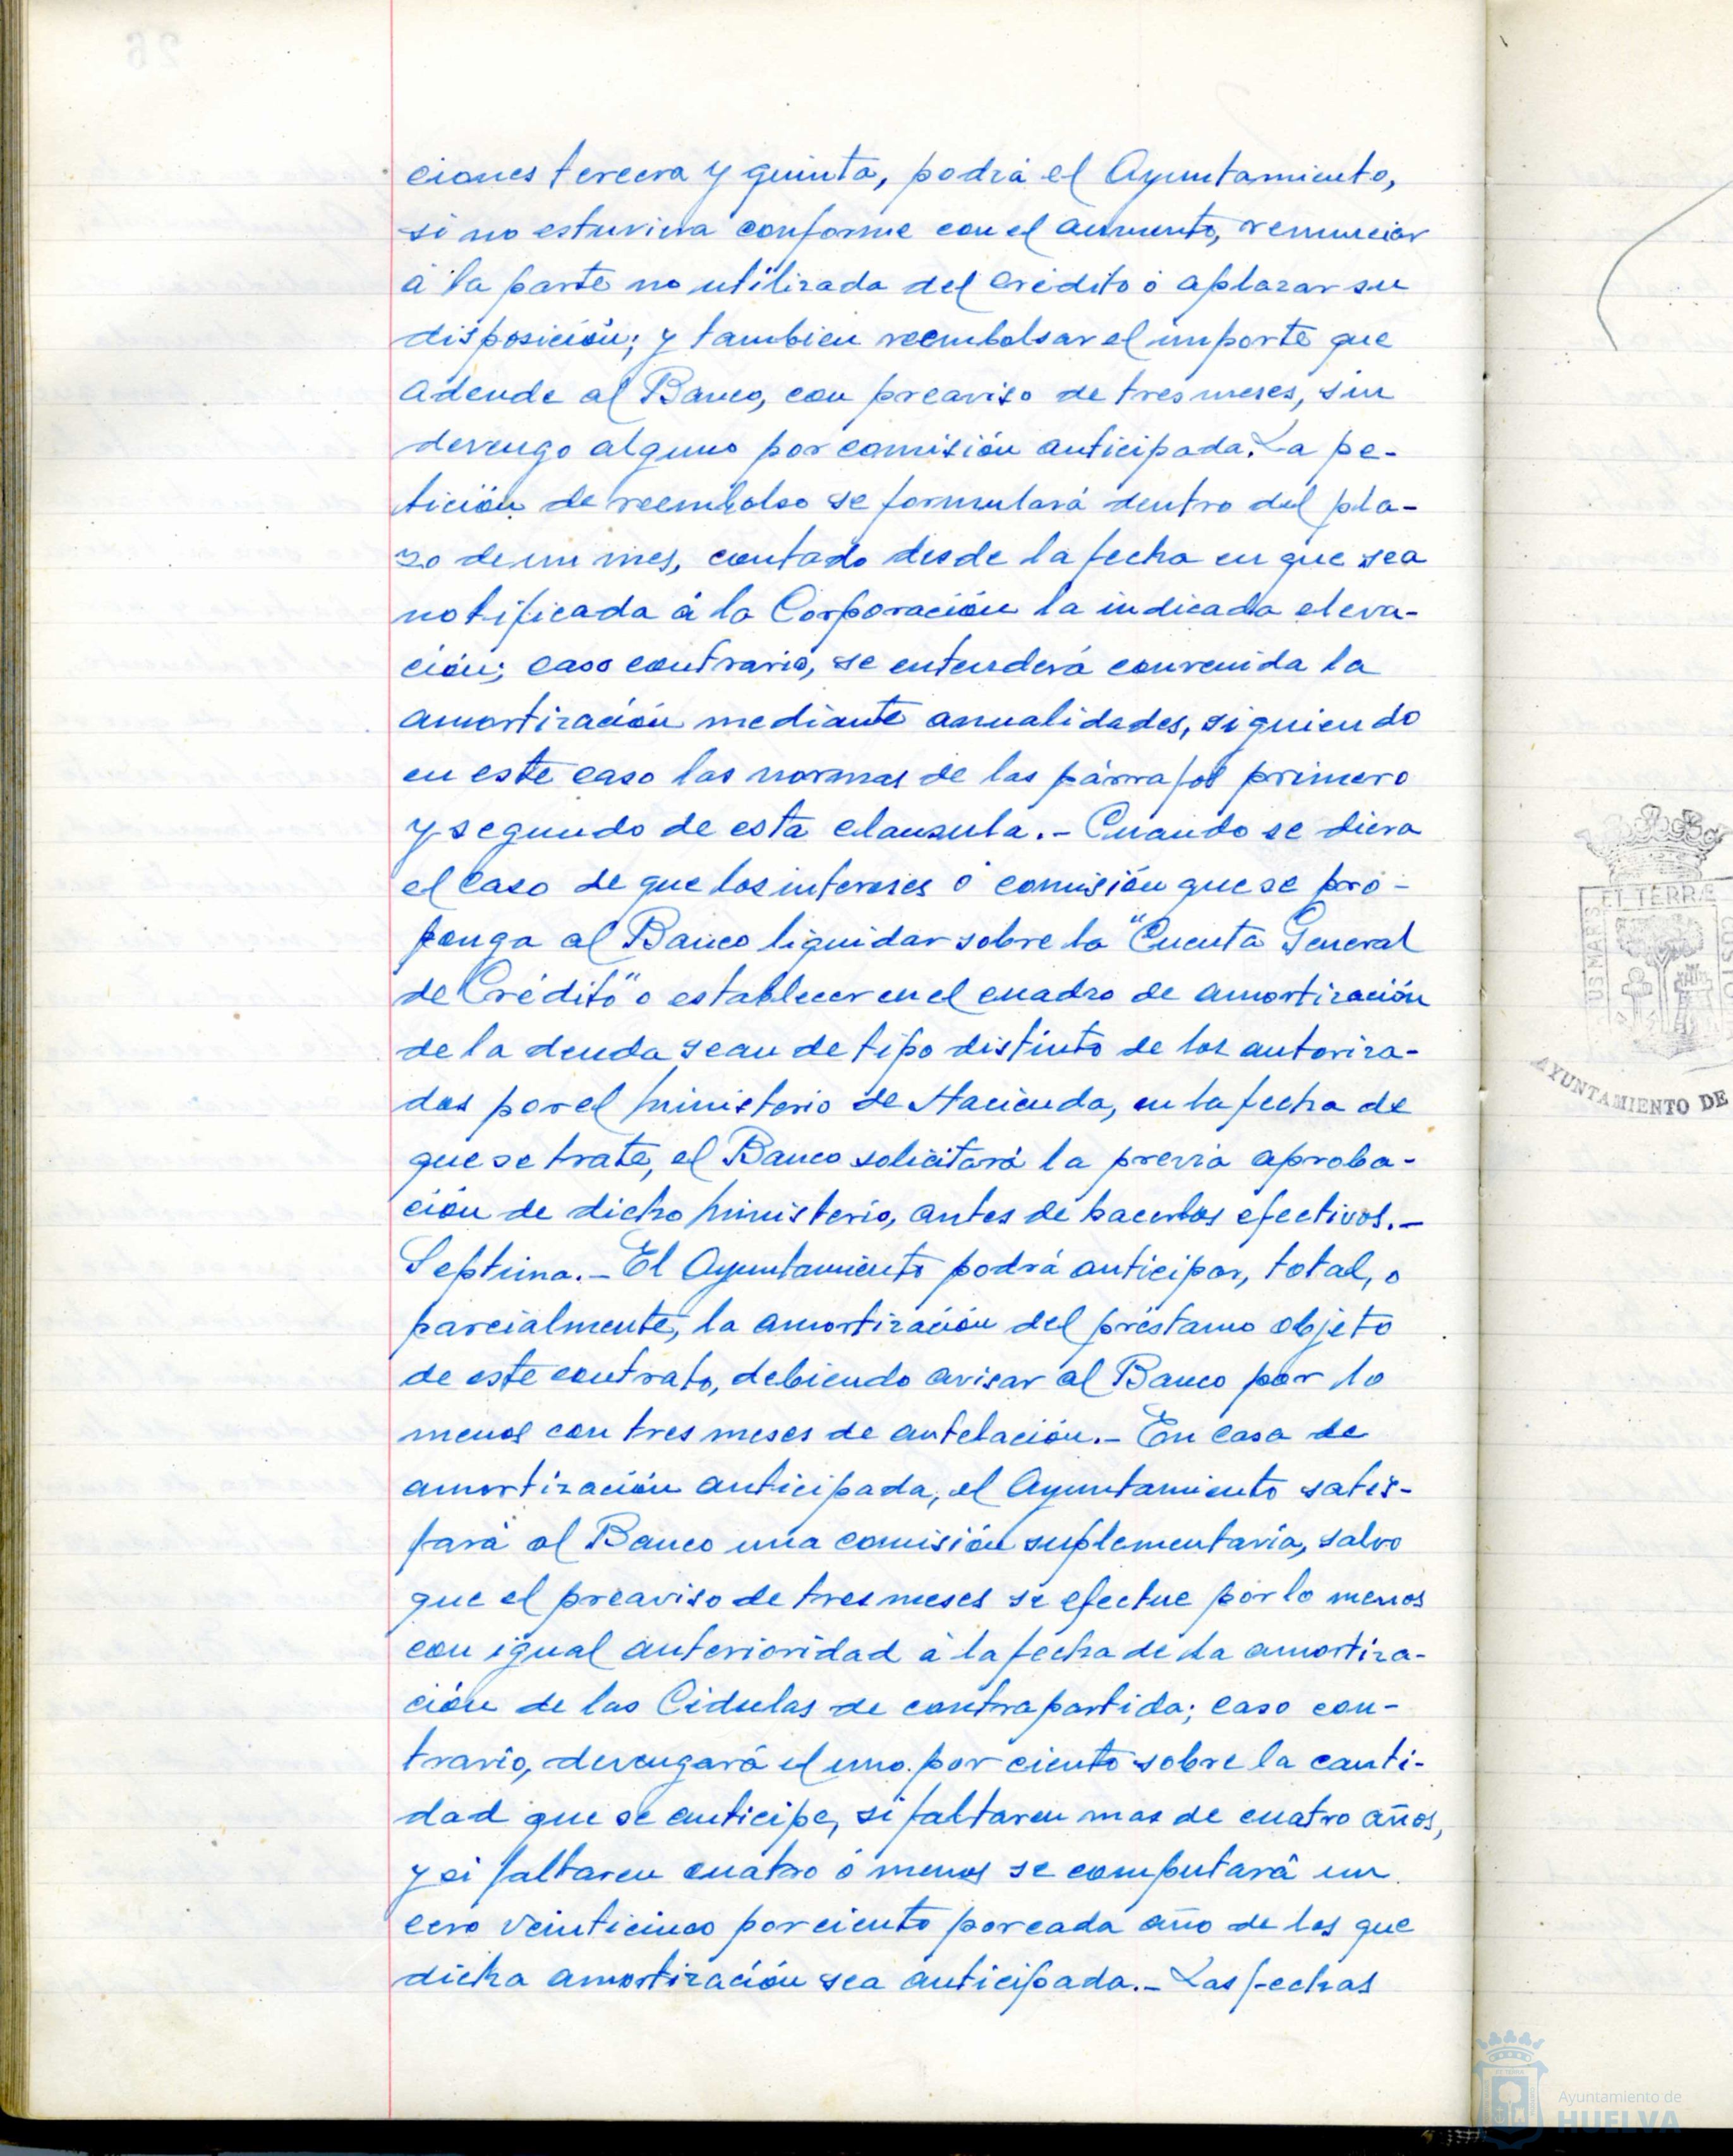 ciones tercera y quinta, podrá el Ayuntamiento,
si no estuviera conforme con el aumento, renunciar
á la parte no utilizada del crédito ó aplazar su
disposición; y tambien reembolsar el importe que
adeude al Banco, con preaviso de tres meses, sin
devengo alguno por comisión anticipada. La pe-
tición de reembolso se formulará dentro del pla-
zo de un mes, contado desde la fecha en que sea
notificada á la Corporación la indicada eleva-
ción; caso contrario, se entenderá convenida la
amortización mediante anualidades, siguiendo
en este caso las normas de los párrafos primero
y segundo de esta clausula.- Cuando se diera
el caso de que los intereses ó comisión que se pro-
ponga al Banco liquidar sobre la "Cuenta General
de Crédito" o establecer en el cuadro de amortización
de la deuda sean de tipo distinto de los autoriza-
dos por el Ministerio de Hacienda, en la fecha de
que se trate, el Banco solicitará la previa aproba-
ción de dicho Ministerio, antes de hacerlos efectivos.-
Septima.- El Ayuntamiento podrá anticipar, total, o
parcialmente, la amortización del préstamo objeto
de este contrato, debiendo avisar al Banco por lo
menos con tres meses de antelación.- En caso de
amortización anticipada, el Ayuntamiento satis-
fará al Banco una comisión suplementaria, salvo
que el preaviso de tres meses se efectue por lo menos
con igual anterioridad á la fecha de la amortiza-
ción de las Cédulas de contrapartida; caso con-
trario, devengará el uno por ciento sobre la canti-
dad que se anticipe, si faltaren mas de cuatro años,
y si faltaren cuatro ó menos se computará un
cero veinticinco por ciento por cada año de los que
dicha amortización sea anticipada.- Las fechas
ET TERRÆ
US MARIS
AYUNTAMIENTO DE
Ayuntamiento de
HUELVA